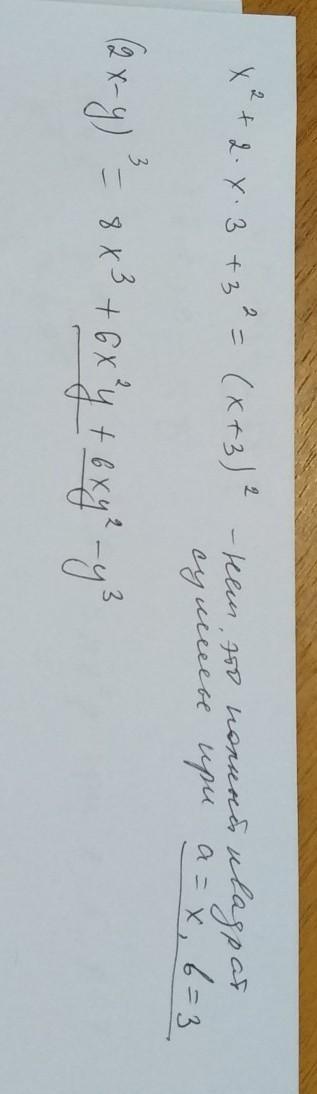 x² + 2 · x · 3 + 3² = (x+3)² – нет, это полный квадрат
суммы при a = x, b = 3
(2x-y)³ = 8x³ + 6x²y + 6xy² - y³